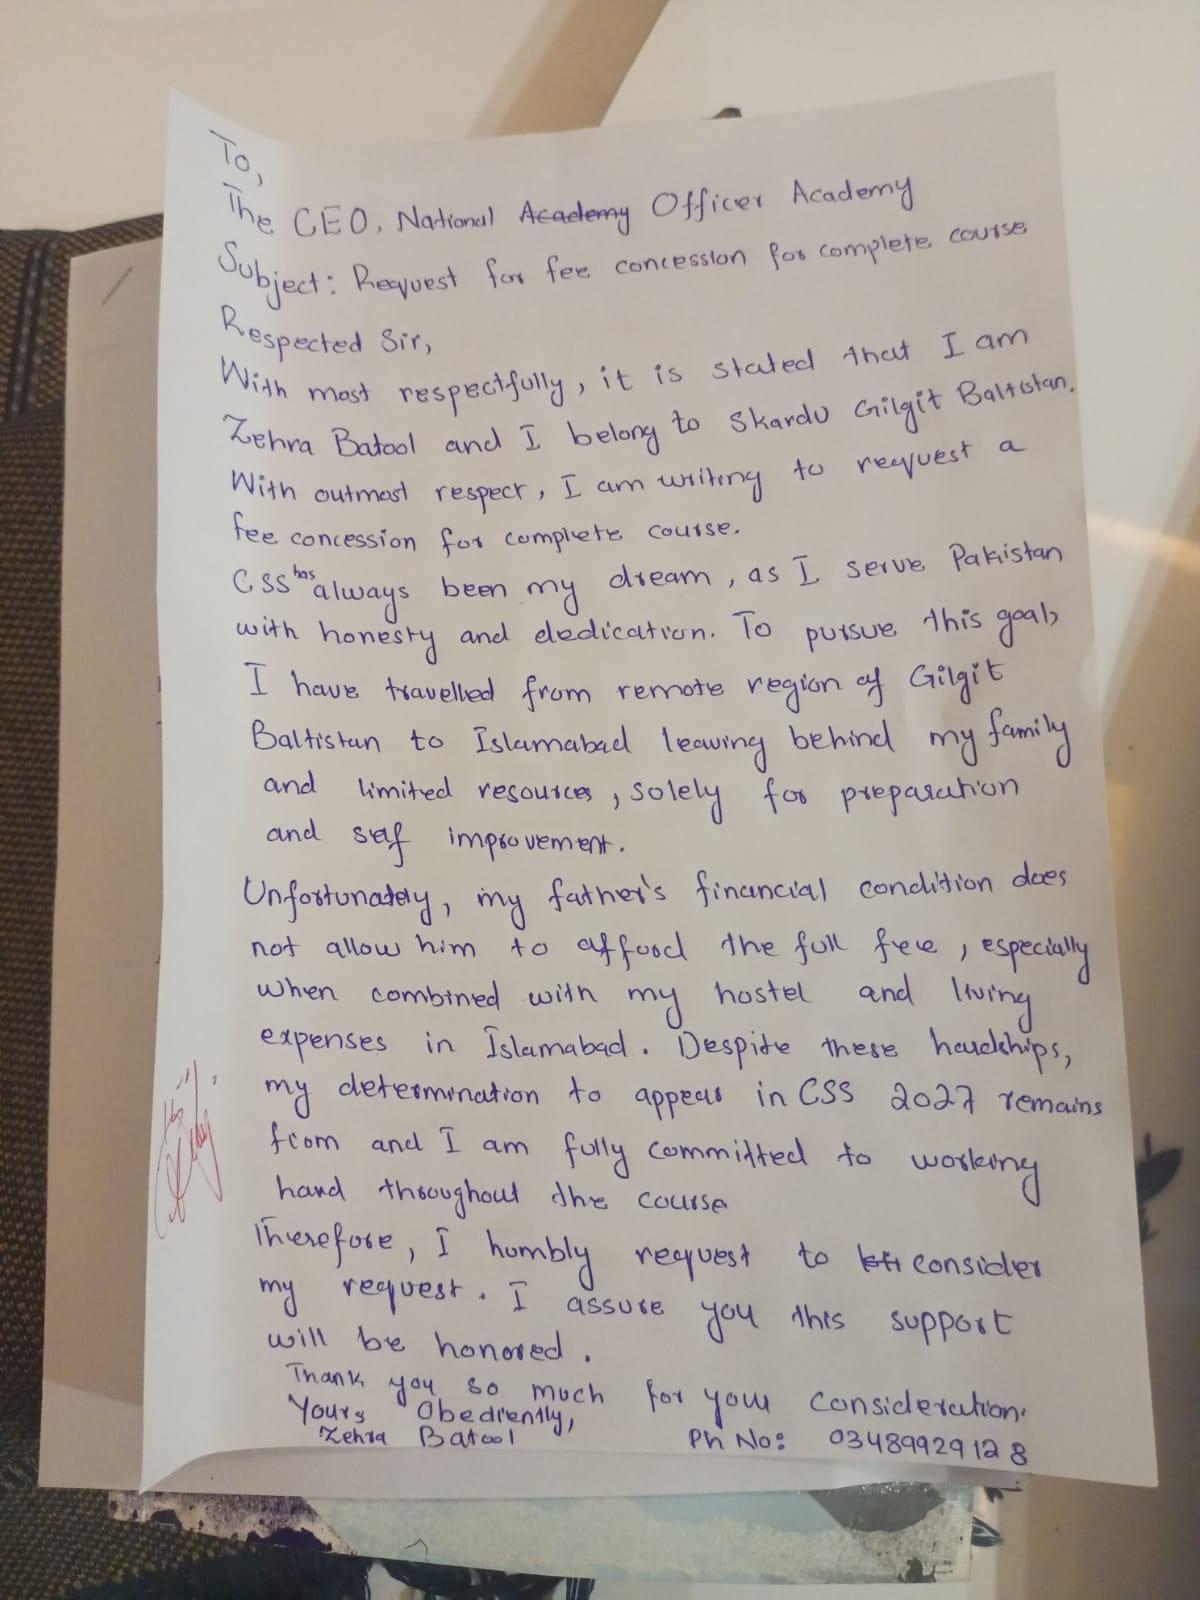 To,
The CEO, National Academy Officer Academy
Subject: Request for fee concession for complete course
Respected Sir,
With most respectfully, it is stated that I am
Zehra Batool and I belong to Skardu Gilgit Baltistan.
With outmost respect, I am writing to request a
fee concession for complete course.
CSS has always been my dream, as I serve Pakistan
with honesty and dedication. To pursue this goal,
I have travelled from remote region of Gilgit
Baltistan to Islamabad leaving behind my family
and limited resources, solely for preparation
and self improvement.
Unfortunately, my father's financial condition does
not allow him to afford the full fee, especially
when combined with my hostel and living
expenses in Islamabad. Despite these hardships,
my determination to appear in CSS 2027 remains
from and I am fully committed to working
hard throughout the course
Therefore, I humbly request to consider
my request. I assure you this support
will be honored.
Thank you so much for your consideration.
Yours Obediently,
Zehra Batool Ph No: 03489929128